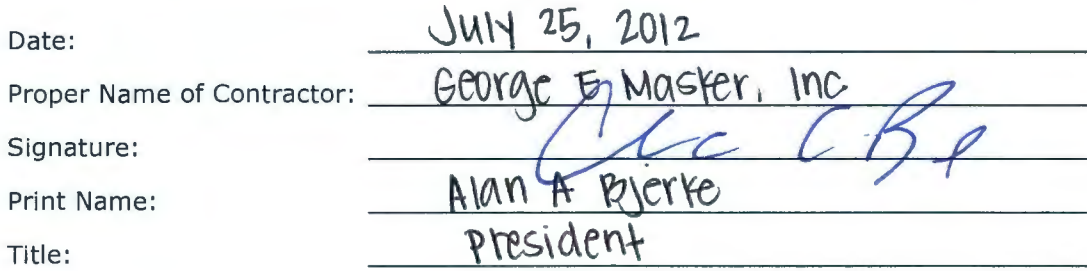 Date: July 25, 2012
Proper Name of Contractor: George E Masker, Inc
Signature:
Print Name: Alan A Bjerke
Title: President